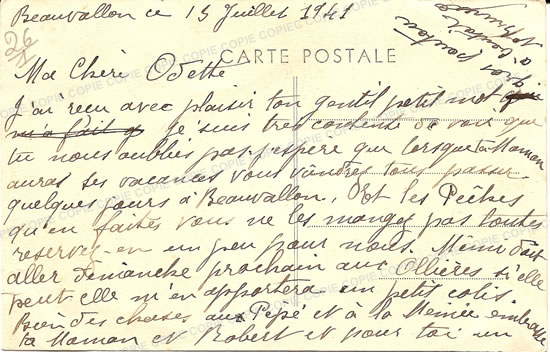 Beauvallon ce 13 Juillet 1941
CARTE POSTALE
Ma Chère Odette
J'ai reçu avec plaisir ton gentil petit mot
m'a fait je suis très contente de voir que
tu nous oublies pas. j'espère que lorsque ta Maman
auras ses vacances vous viendres tous passer
quelques jours à Beauvallon. Et les Pêches
qu'en faites vous ne les mangez pas toutes
reservez en un peu pour nous. Mémé doit
aller dimanche prochain aux Ollières si elle
peut elle m'en apportera un petit colis.
Bien des choses aux Pépé et à la Mémée embrasse
ta Maman et Robert et pour toi un
gros poutou
COPIE COPIE COPIE COPIE